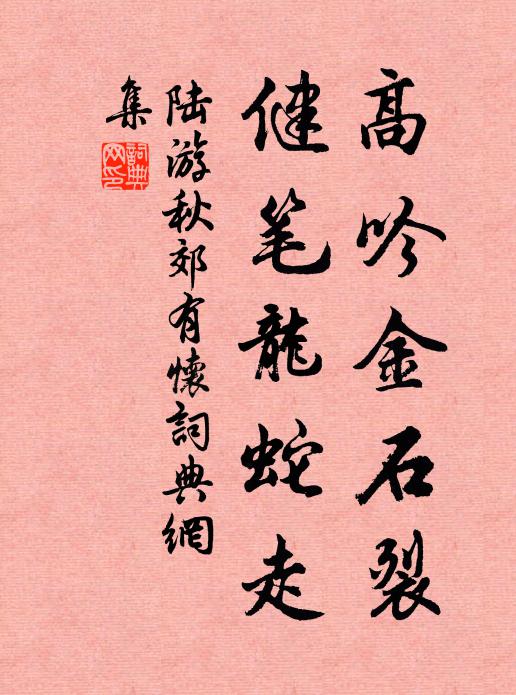 高吟金石裂
健笔龍蛇走
陆游秋郊有懷詞典網
集
詞典
网印